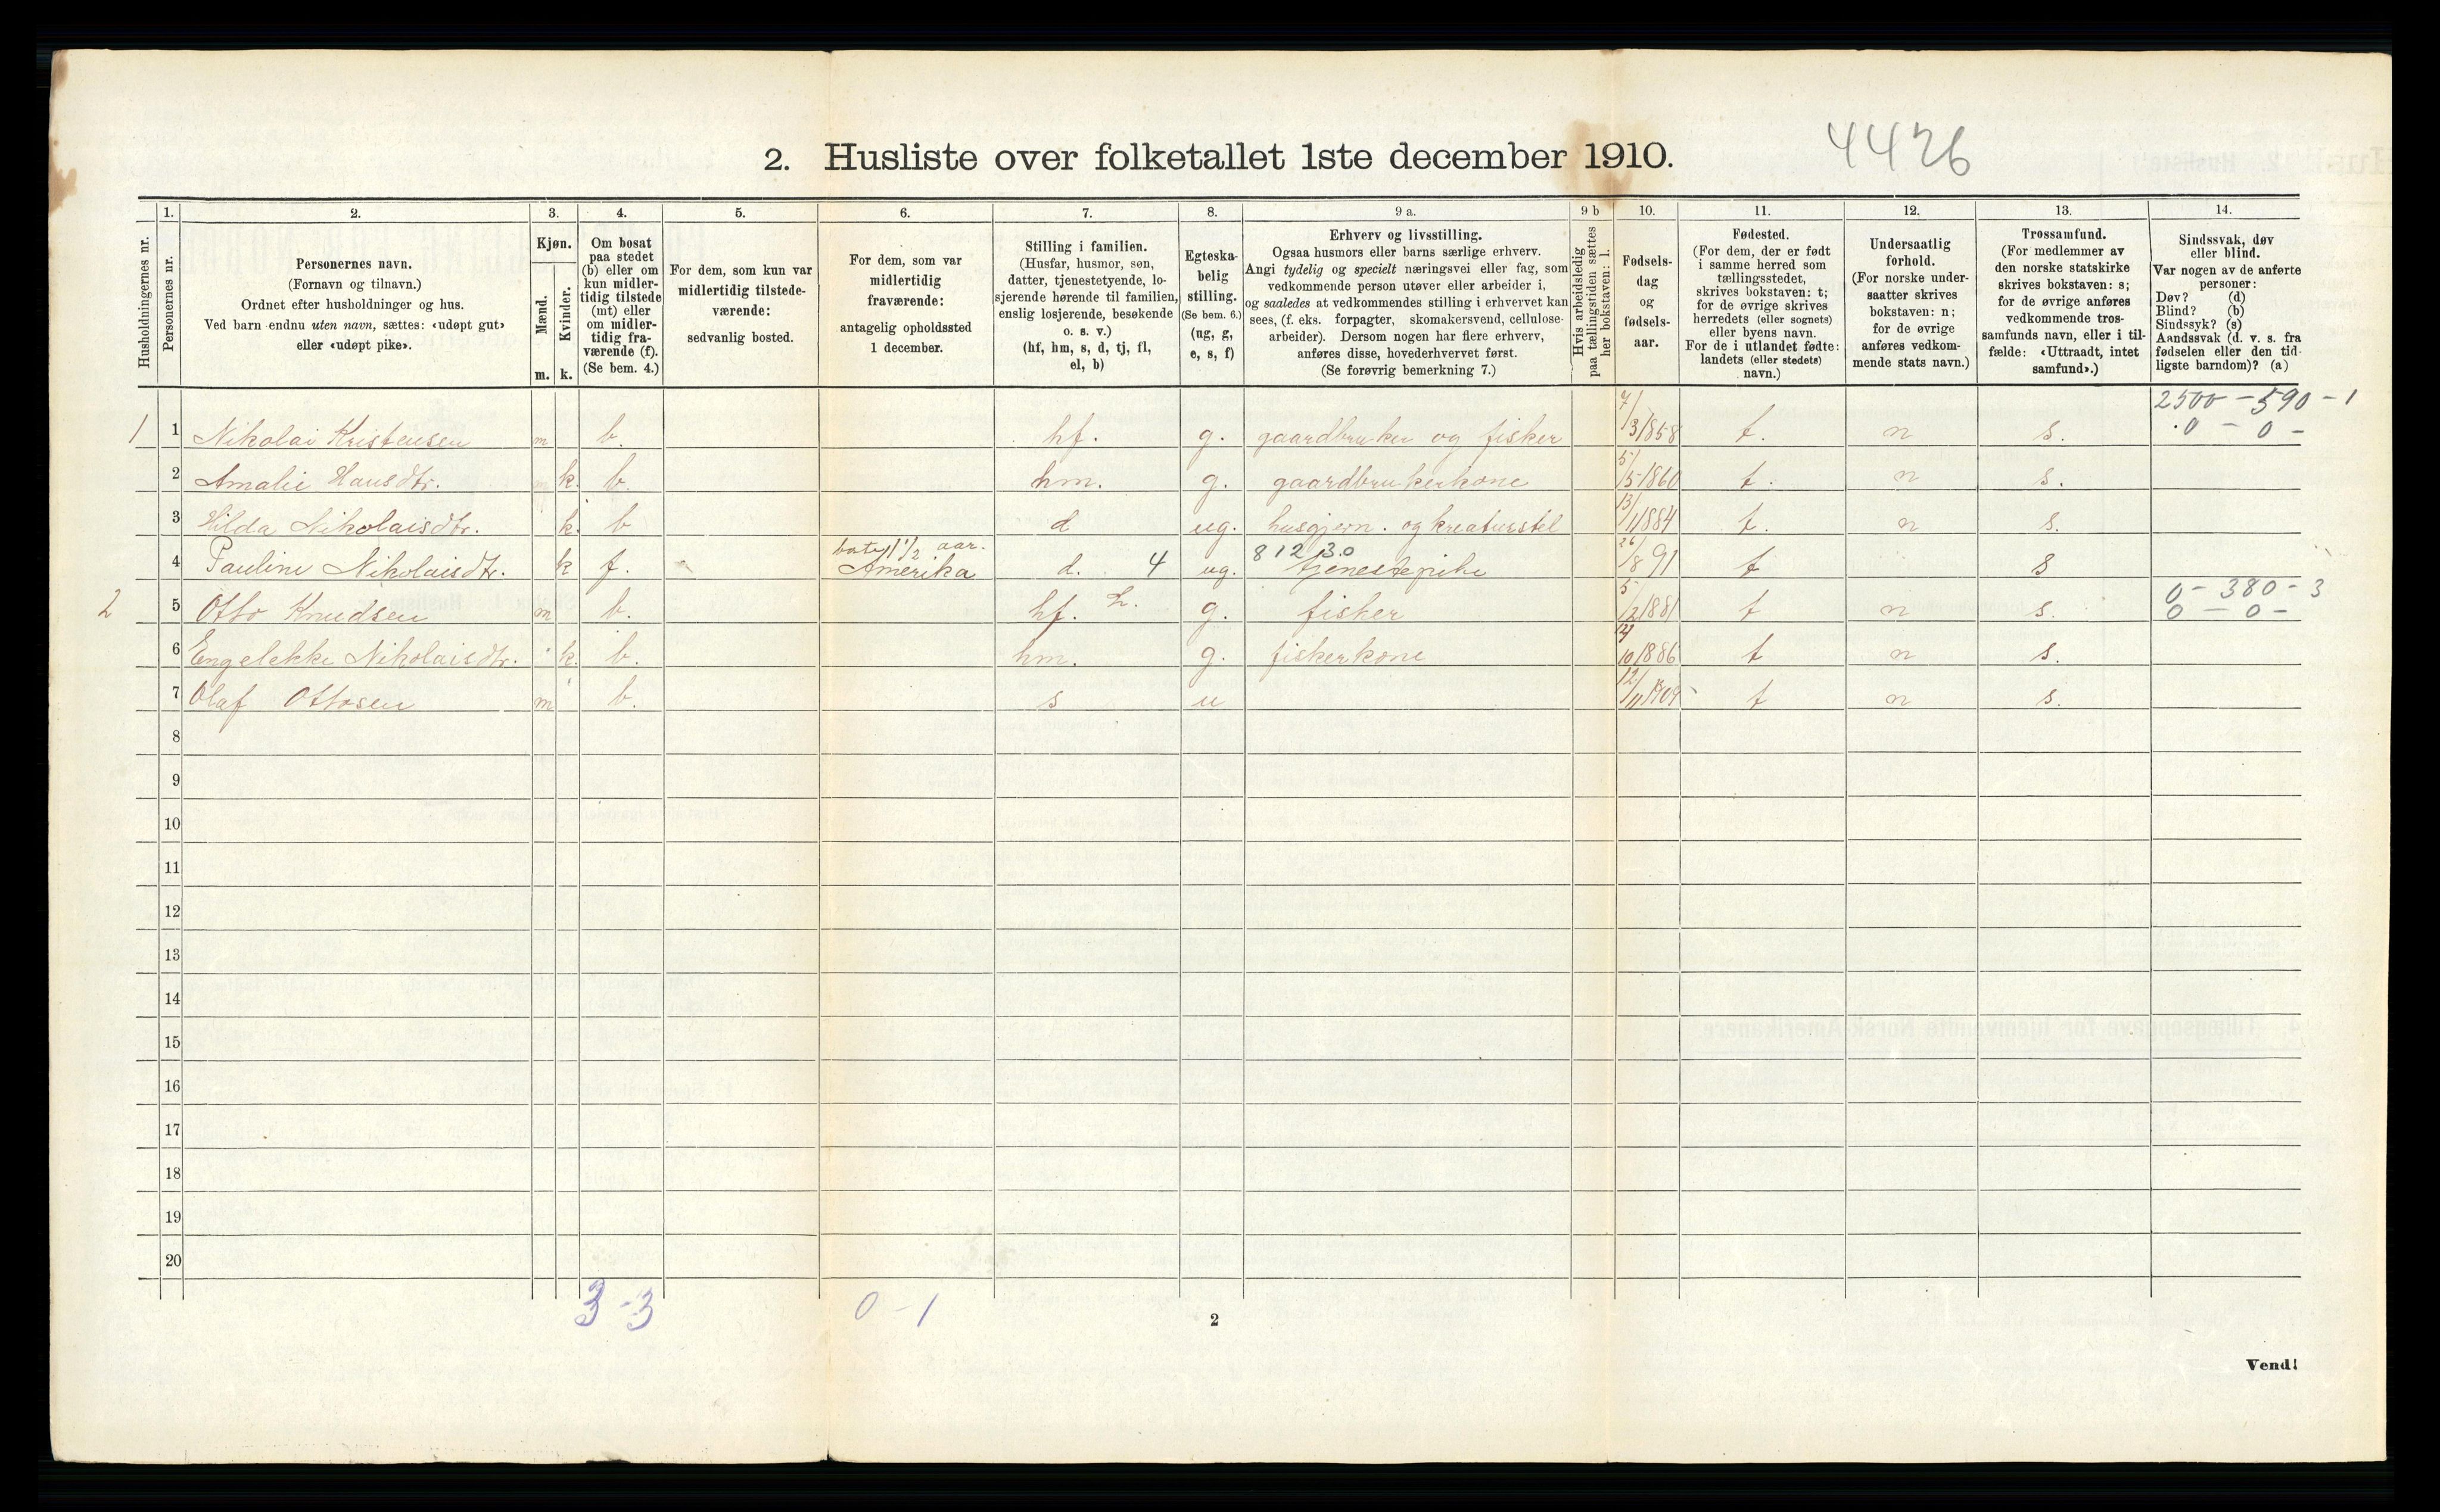 2. Husliste over folketallet 1ste december 1910.
4426
Husholdningernes nr.
1.
Personernes nr.
2.
Personernes navn.
(Fornavn og tilnavn.)
Ordnet efter husholdninger og hus.
Ved barn endnu uten navn, sættes: «udøpt gut»
eller «udøpt pike».
3.
Kjøn.
Mænd.
Kvinder.
m. k.
4.
Om bosat
paa stedet
(b) eller om
kun midler-
tidig tilstede
(mt) eller
om midler-
tidig fra-
værende (f).
(Se bem. 4.)
5.
For dem, som kun var
midlertidig tilstede-
værende:
sedvanlig bosted.
6.
For dem, som var
midlertidig
fraværende:
antagelig opholdssted
1 december.
7.
Stilling i familien.
(Husfar, husmor, søn,
datter, tjenestetyende, lo-
sjerende hørende til familien,
enslig losjerende, besøkende
o. s. v.)
(hf, hm, s, d, tj, fl,
el, b)
8.
Egteska-
belig
stilling.
(Se bem. 6.)
(ug, g,
e, s, f)
9 a.
Erhverv og livsstilling.
Ogsaa husmors eller barns særlige erhverv.
Angi tydelig og specielt næringsvei eller fag, som
vedkommende person utøver eller arbeider i,
og saaledes at vedkommendes stilling i erhvervet kan
sees, (f. eks. forpagter, skomakersvend, cellulose-
arbeider). Dersom nogen har flere erhverv,
anføres disse, hovederhvervet først.
(Se forøvrig bemerkning 7.)
9 b
Hvis arbeidsledig
paa tællingstiden sættes
her bokstaven: l.
10.
Fødsels-
dag
og
fødsels-
aar.
11.
Fødested.
(For dem, der er født
i samme herred som
tællingsstedet,
skrives bokstaven: t;
for de øvrige skrives
herredets (eller sognets)
eller byens navn.
For de i utlandet fødte:
landets (eller stedets)
navn.)
12.
Undersaatlig
forhold.
(For norske under-
saatter skrives
bokstaven: n;
for de øvrige
anføres vedkom-
mende stats navn.)
13.
Trossamfund.
(For medlemmer av
den norske statskirke
skrives bokstaven: s;
for de øvrige anføres
vedkommende tros-
samfunds navn, eller i til-
fælde: «Uttraadt, intet
samfund».)
14.
Sindssvak, døv
eller blind.
Var nogen av de anførte
personer:
Døv? (d)
Blind? (b)
Sindssyk? (s)
Aandssvak (d. v. s. fra
fødselen eller den tid-
ligste barndom)? (a)
2500 - 590 - 1
1 1 Nikolai Kristensen m b. hf. g. gaardbruker og fisker 7/3 1858 t. n s. 0 - 0 -
2 Amalie Hansdtr. k. b. hm. g. gaardbrukerkone 5/5 1860 t. n s.
3 Hilda Nikolaisdtr. k. b d ug. husgjern. og kreaturstel 13/1 1884 t. n s.
1 1/2 aar. 8 12 13.0
4 Pauline Nikolaisdtr. k f. Amerika d. 4 ug. tjenestepike 26/8 91 t s
0 - 380 - 3
2 5 Otto Knudsen m b. hf. g. fisker 5/12 1881 t n s. 0 - 0 -
6 Engelekke Nikolaisdtr. k. b. hm. g. fiskerkone 10 1886 t n s.
7 Olaf Ottosen m b. s u 12/11 1909 t n s.
8
9
10
11
12
13
14
15
16
17
18
19
20
3-3 0-1
2
Vend!